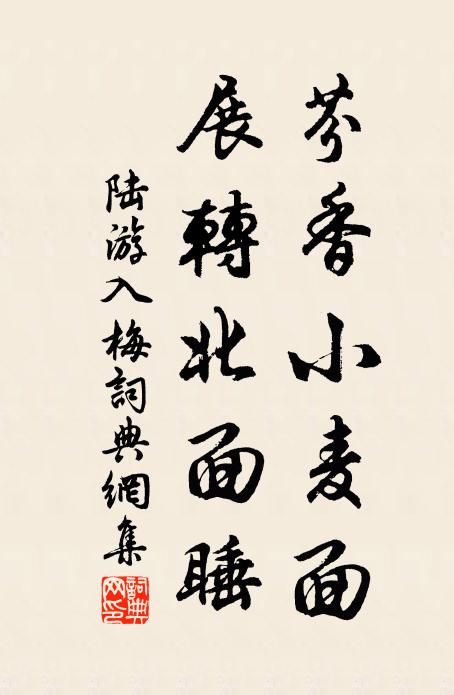 芬香小麦面
展轉北面睡
陆游入梅詞典網集
詞典网印